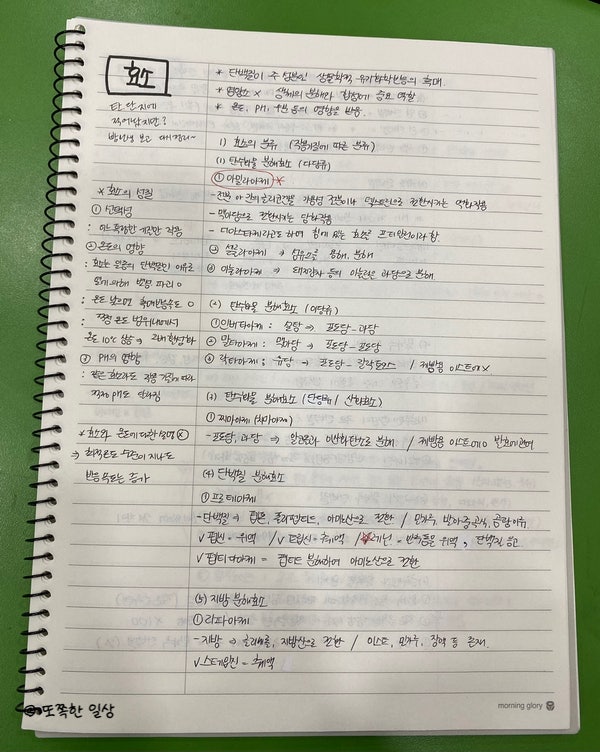 효소
탄 단 지에
적어놨지만?
방산성 보고 다시 정리~
* 효소의 성질
① 선택성
: 어느 특정한 기질만 작용
② 온도의 영향
: 효소는 일종의 단백질인 이유로
열에 의해 변성 파괴 O
: 온도 낮으면 촉매반응속도 O
: 적정 온도 범위내에서
온도 10℃ 상승 → 2배 활성화
③ pH의 영향
: 같은 효소라도 작용 기질에 따라
적정 pH도 달라짐
* 효소와 온도에 대한 설명 ⓧ
⇒ 최적온도 수준이 지나도
반응 속도는 증가
* 단백질이 주 성분인 생물학적 유기화학반응의 촉매.
* 영양소 X 생체의 분해와 집합에 중요 역할
* 온도, pH, 수분 등의 영향을 받음.
1) 효소의 분류 (작용기질에 따른 분류)
(1) 탄수화물 분해효소 (다당류)
① 아밀라아제 *
- 전분 이나 간에 글리코겐을 가용성 전분이나 덱스트린으로 전환시키는 액화작용
- 맥아당으로 전환시키는 당화작용
- 디아스타아제라고도 하며 침에 있는 효소를 프티알린이라 함.
② 셀룰라아제 ⇒ 섬유소를 용해, 분해.
③ 이눌라아제 ⇒ 돼지감자 등의 이눌린을 과당으로 분해.
(2) 탄수화물 분해효소 (이당류)
① 인버타아제 : 설탕 ⇒ 포도당 - 과당
② 말타아제 : 맥아당 ⇒ 포도당 - 포도당
③ 락타아제 : 유당 ⇒ 포도당 - 갈락토오스 / 제빵용 이스트에 X.
(3) 탄수화물 분해효소 (단당류 / 산화효소)
① 찌마아제 (치마아제)
- 포도당, 과당 ⇒ 알코올과 이산화탄소로 분해 / 제빵용 이스트에 O 발효에 관여
(4) 단백질 분해효소
① 프로테아제
- 단백질 ⇒ 펩톤, 폴리펩티드, 아미노산으로 전환 / 밀가루, 발아 중 곡식, 곰팡이류,
∨ 펩신 - 위액 / ∨ 트립신 - 췌액 / ∨ 레닌 = 반추동물 위액, 단백질 응고
∨ 펩티다아제 = 펩티드 분해하여 아미노산으로 전환
(5) 지방 분해효소
① 리파아제
- 지방 ⇒ 글리세롤, 지방산으로 전환 / 이스트, 밀가루, 장액 등 존재.
∨ 스테압신 - 췌액
morning glory
또쪽한 일상